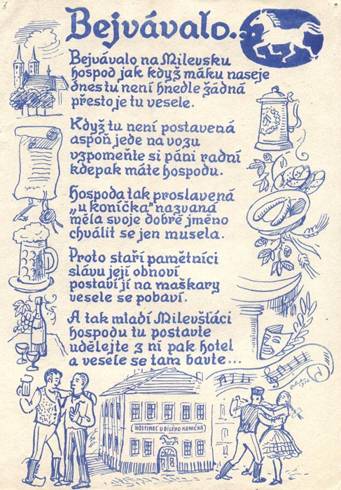 Bejvávalo..
Bejvávalo na Milevsku
hospod jak když máku naseje
dnes tu není hnedle žádná
přesto je tu vesele.
Když tu není postavená
aspoň jede na vozu
vzpomeňte si páni radní
kdepak máte hospodu.
Hospoda tak proslavená
„u koníčka" nazvaná
měla svoje dobré jméno
chválit se jen musela.
Proto staří pamětníci
slávu její obnoví
postaví jí na maškary
vesele se pobaví.
A tak mladí Milevšťáci
hospodu tu postavte
udělejte z ní pak hotel
a vesele se tam bavte...
HOSTINEC U BÍLÉHO KONÍČKA